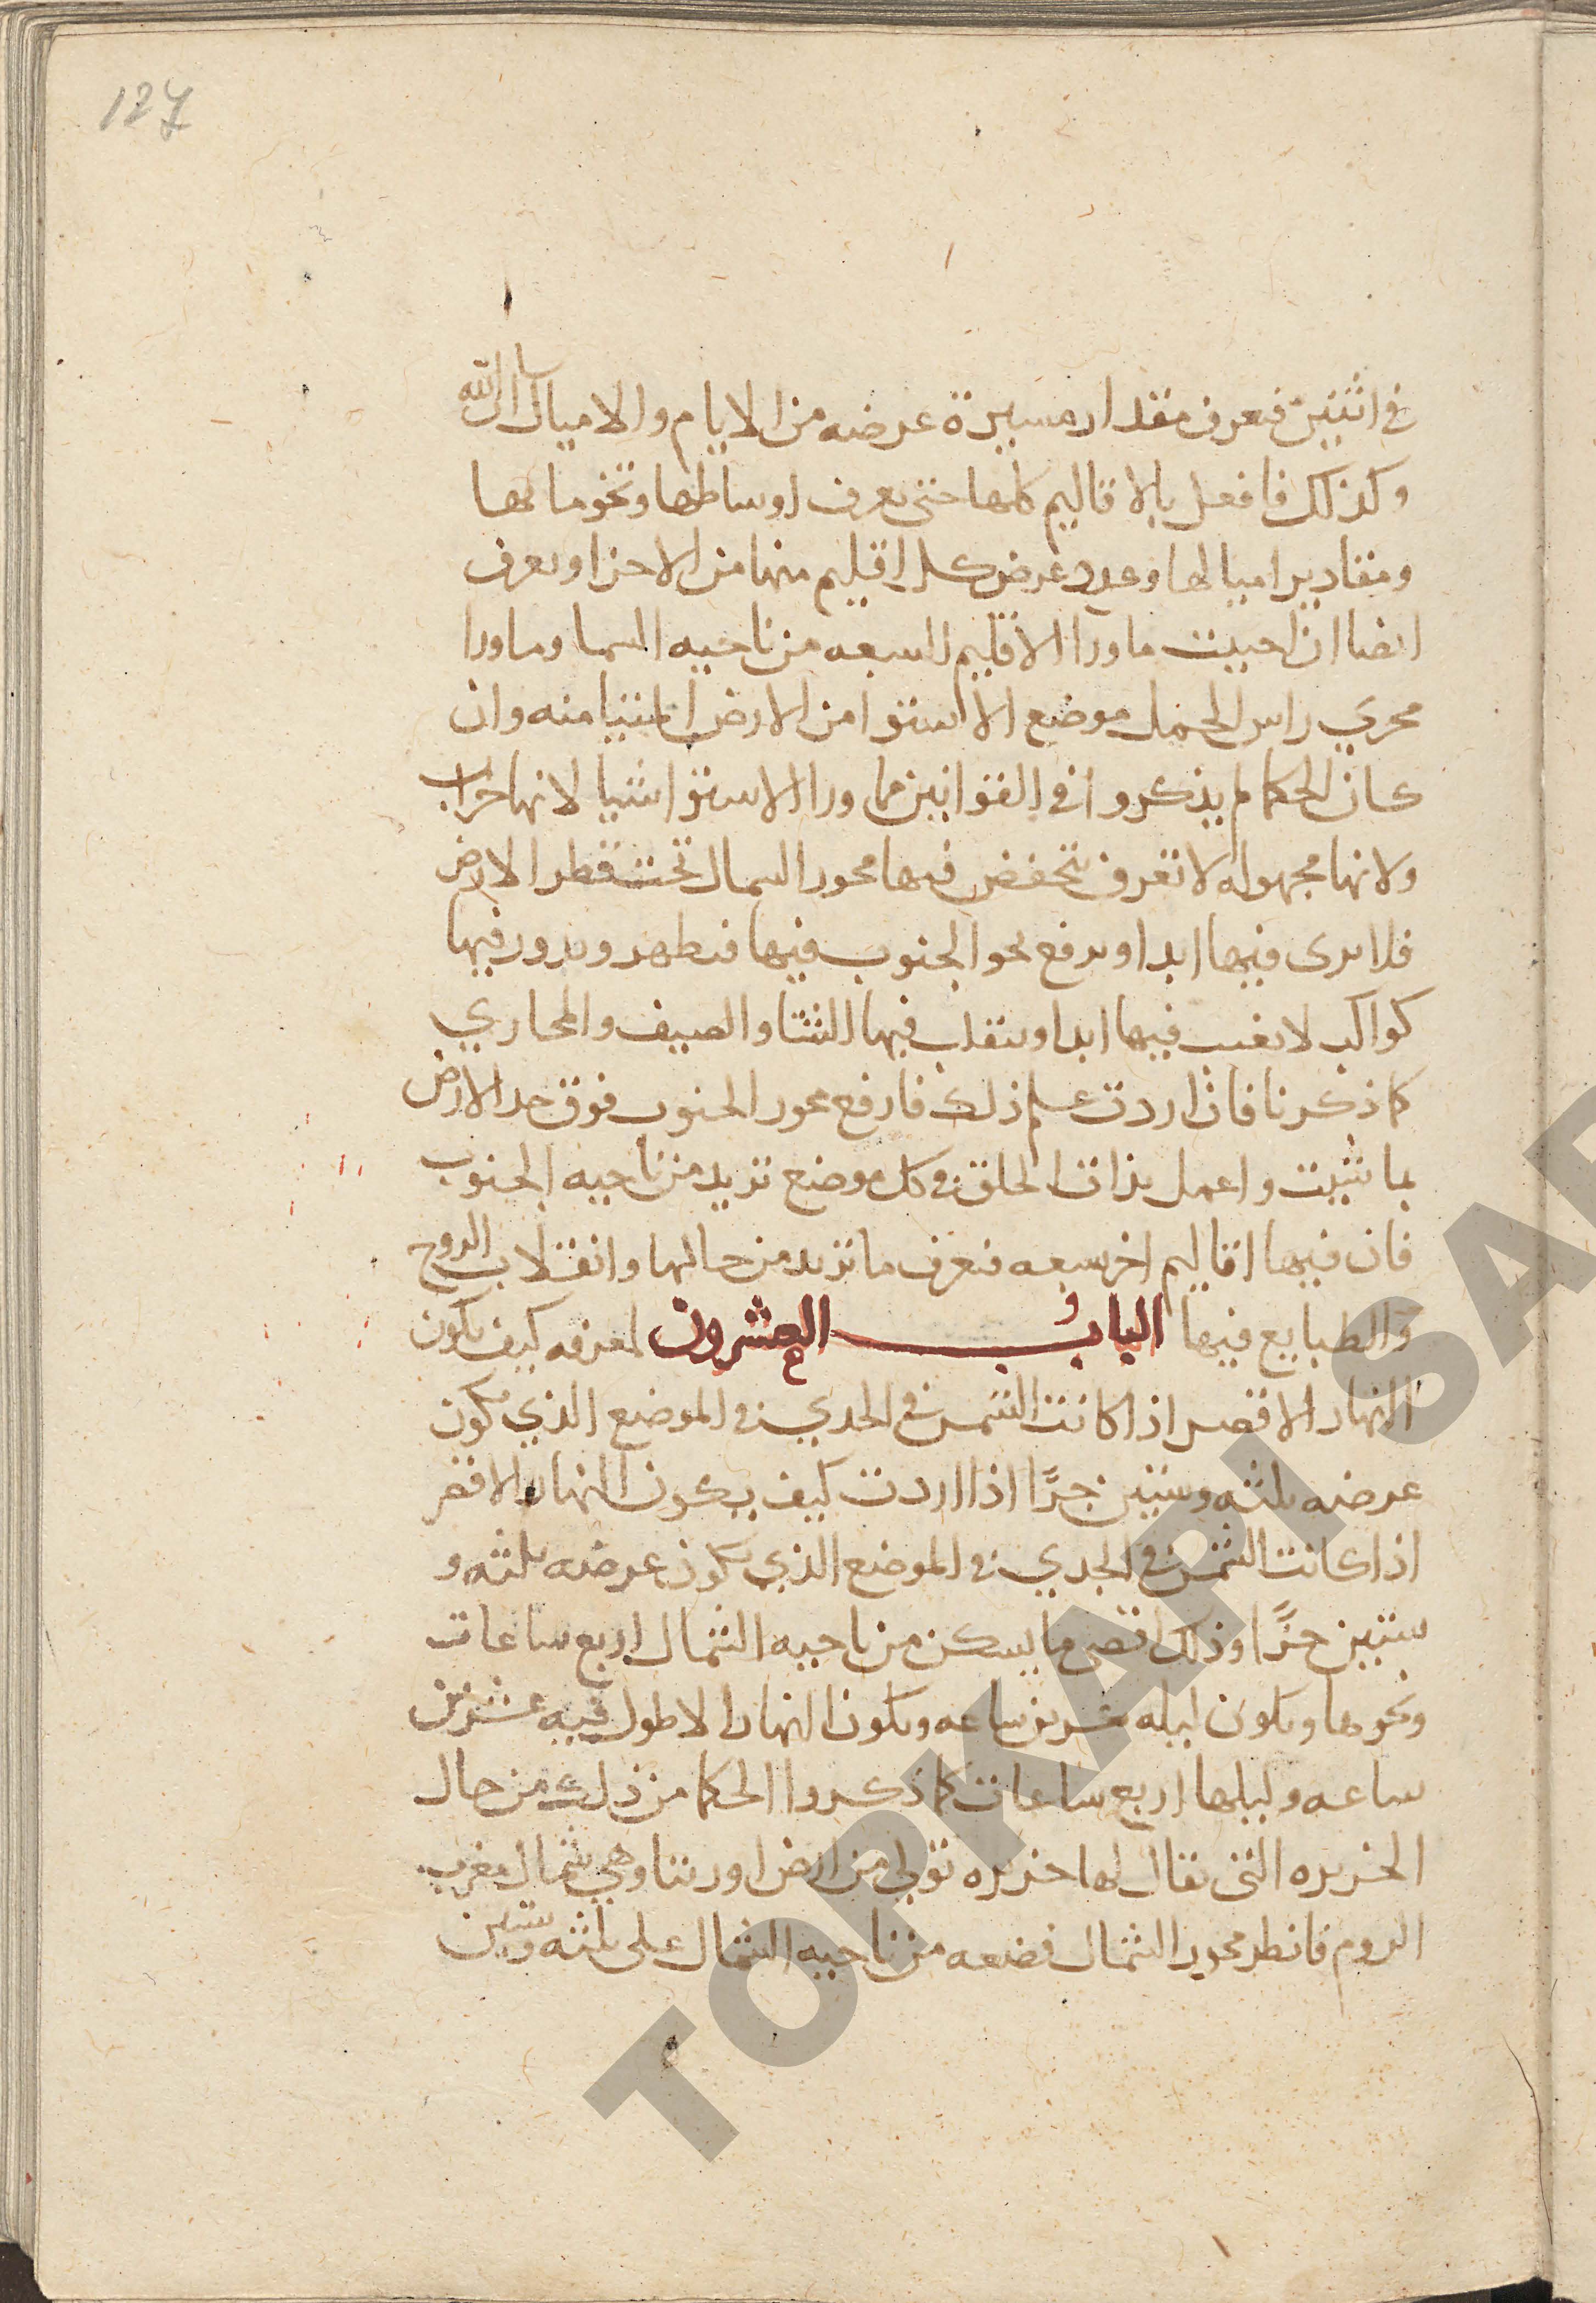 127
في اثنين فتعرف مقدار مسيرة عرضه من الايام والاميال ان شا الله
وكذلك فافعل بالاقاليم كلها حتى تعرف اوساطها وتخومانها
ومقادير اميالها وعدد عرض كل اقليم منها من الاجزا وتعرف
ايضا ان احببت ما ورا الاقليم السبعه من ناحيه السما وما ورا
مجري راس الحمل موضع الاستوا من الارض اما شيا منه وان
كان الحكما لم يذكروا في القوانين مما ورا الاستوا شيا لانها خراب
ولانها مجهوله لا تعرف ينخفض فيها محور الشمال تحت قطر الارض
فلا يرى فيها ابدا ويرفع نحو الجنوب فيها فيظهر ويدور فيها
كواكب لا تغيب فيها ابدا وينقلب فيها الشتا والصيف والمجاري
كما ذكرنا فان اردت علم ذلك فارفع محور الجنوب فوق حد الارض
بما شيت واعمل بذات الحلق في كل موضع تريد من ناحيه الجنوب
فان فيها اقاليم اخر سبعه فتعرف ما تريد من حالها وانقلاب البروج
والطبايع فيها الباب و العشرون لمعرفه كيف يكون
النهار الاقصر اذا كانت الشمس في الجدي في الموضع الذي يكون
عرضه ثلثه وستين جزًا اذا اردت كيف يكون النهار الاقصر
اذا كانت الشمس في الجدي في الموضع الذي يكون عرضه ثلثه و
ستين جزًا وذلك اقصى ما يسكن من ناحيه الشمال اربع ساعات
ونحوها ويكون ليله عشرين ساعه ويكون النهار الاطول فيه عشرين
ساعه وليلها اربع ساعات كما ذكروا الحكما من ذلك من حال
الجزيره التي يقال لها جزيره تولى من ارض اورنتا وهي شمال مغرب
الروم فانظر محور الشمال فضعه من ناحيه الشمال على ثلثه وستين
TOPKAPI SAR